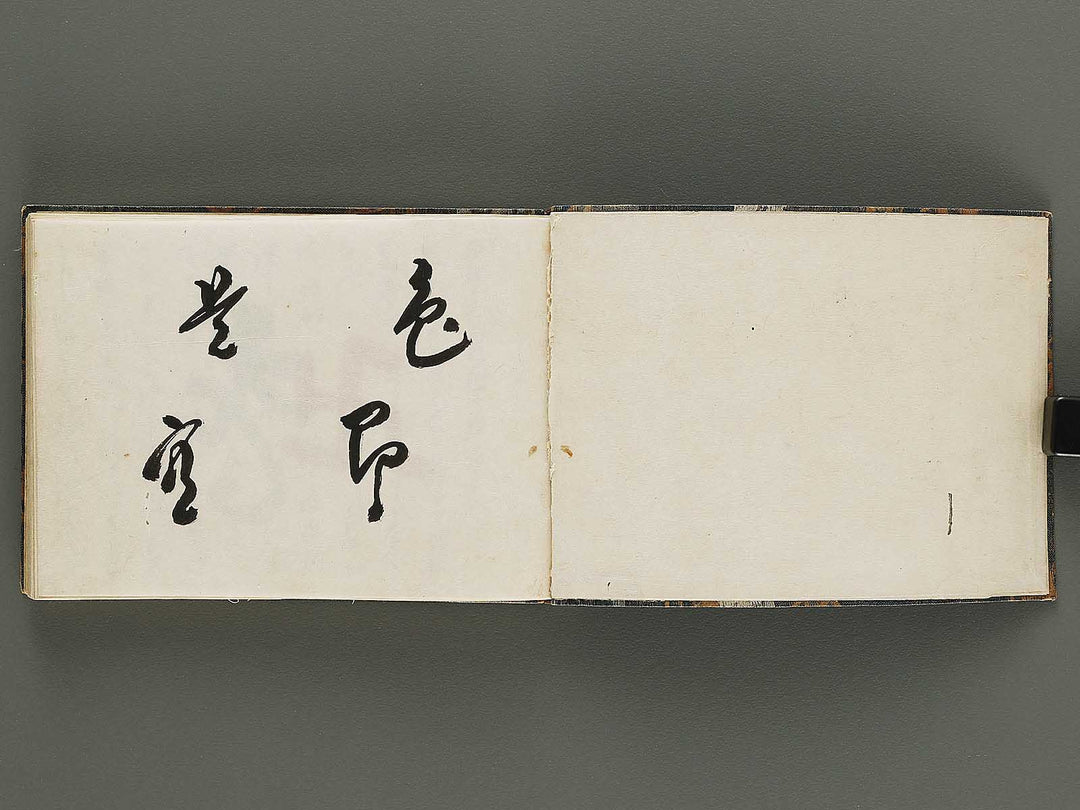 色即
是空